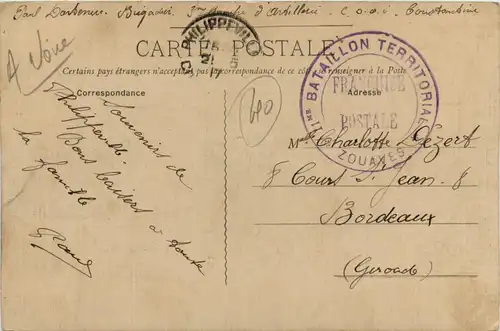 Paul Darbence, Brigadier, d'Artillerie, Constantine
A Voir
CARTE POSTALE
Certains pays étrangers n'acceptent pas la correspondance de ce côté. Renseigner à la Poste
Correspondance
Adresse
PHILIPPEVILLE
21
BATAILLON TERRITORIAL
ZOUAVES
FRANCHISE
POSTALE
400
Souvenirs de
Philippeville.
Bons baisers à toute
la famille
Paul
Mlle Charlotte Dézert
8 Cours St Jean. 8
Bordeaux
(Gironde)